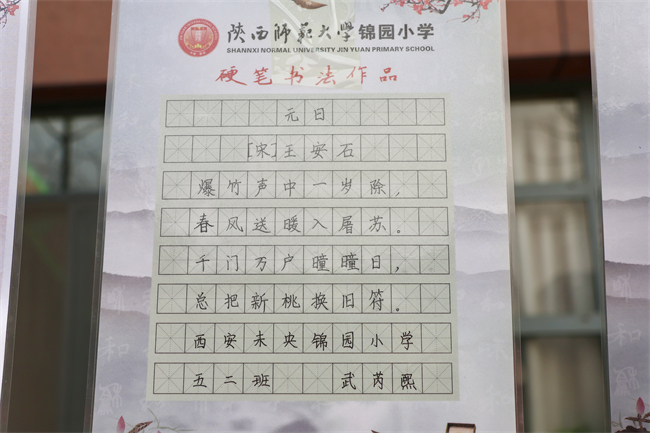 陕西师范大学锦园小学
SHANNXI NORMAL UNIVERSITY JIN YUAN PRIMARY SCHOOL
硬笔书法作品
元日
[宋]王安石
爆竹声中一岁除，
春风送暖入屠苏。
千门万户瞳瞳日，
总把新桃换旧符。
西安未央锦园小学
五二班 武芮熙